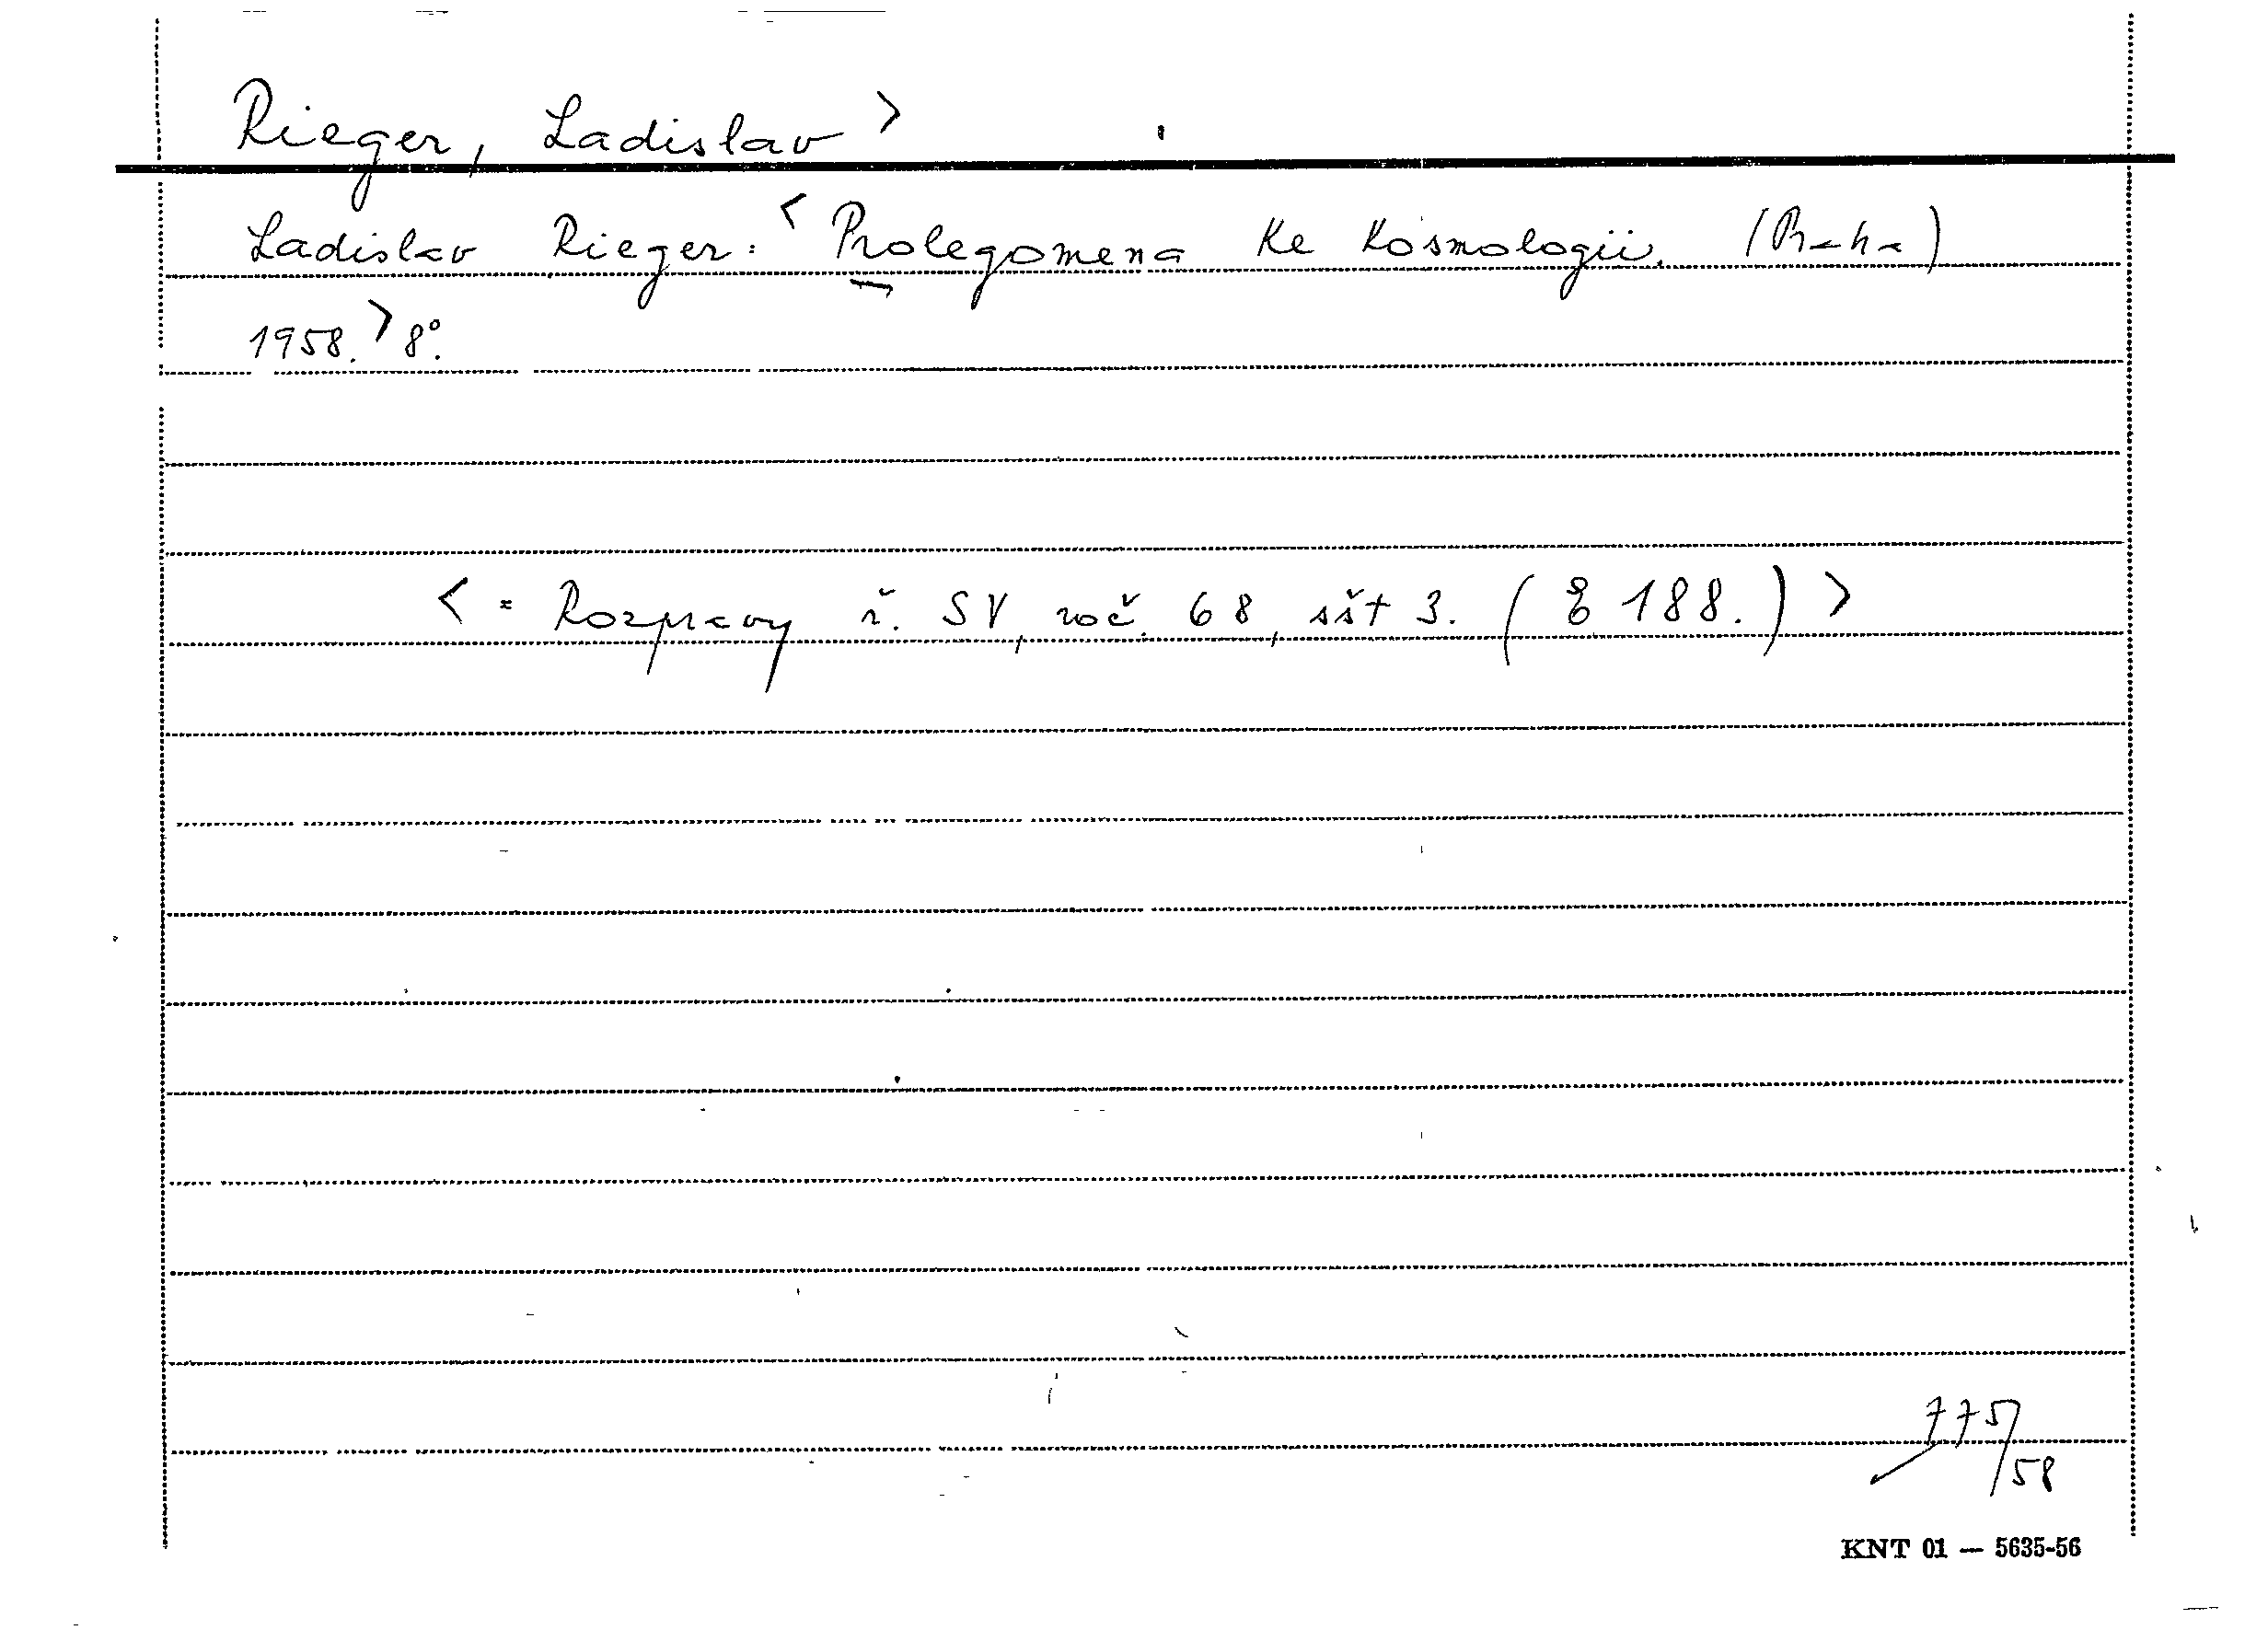 Rieger, Ladislav >
Ladislav Rieger: < Prolegomena ke kosmologii. (Praha)
1958. > 8°.
< = Rozpravy ř. SV, roč. 68, sšt 3. ( 188.) >
775/58
KNT 01 — 5635-56